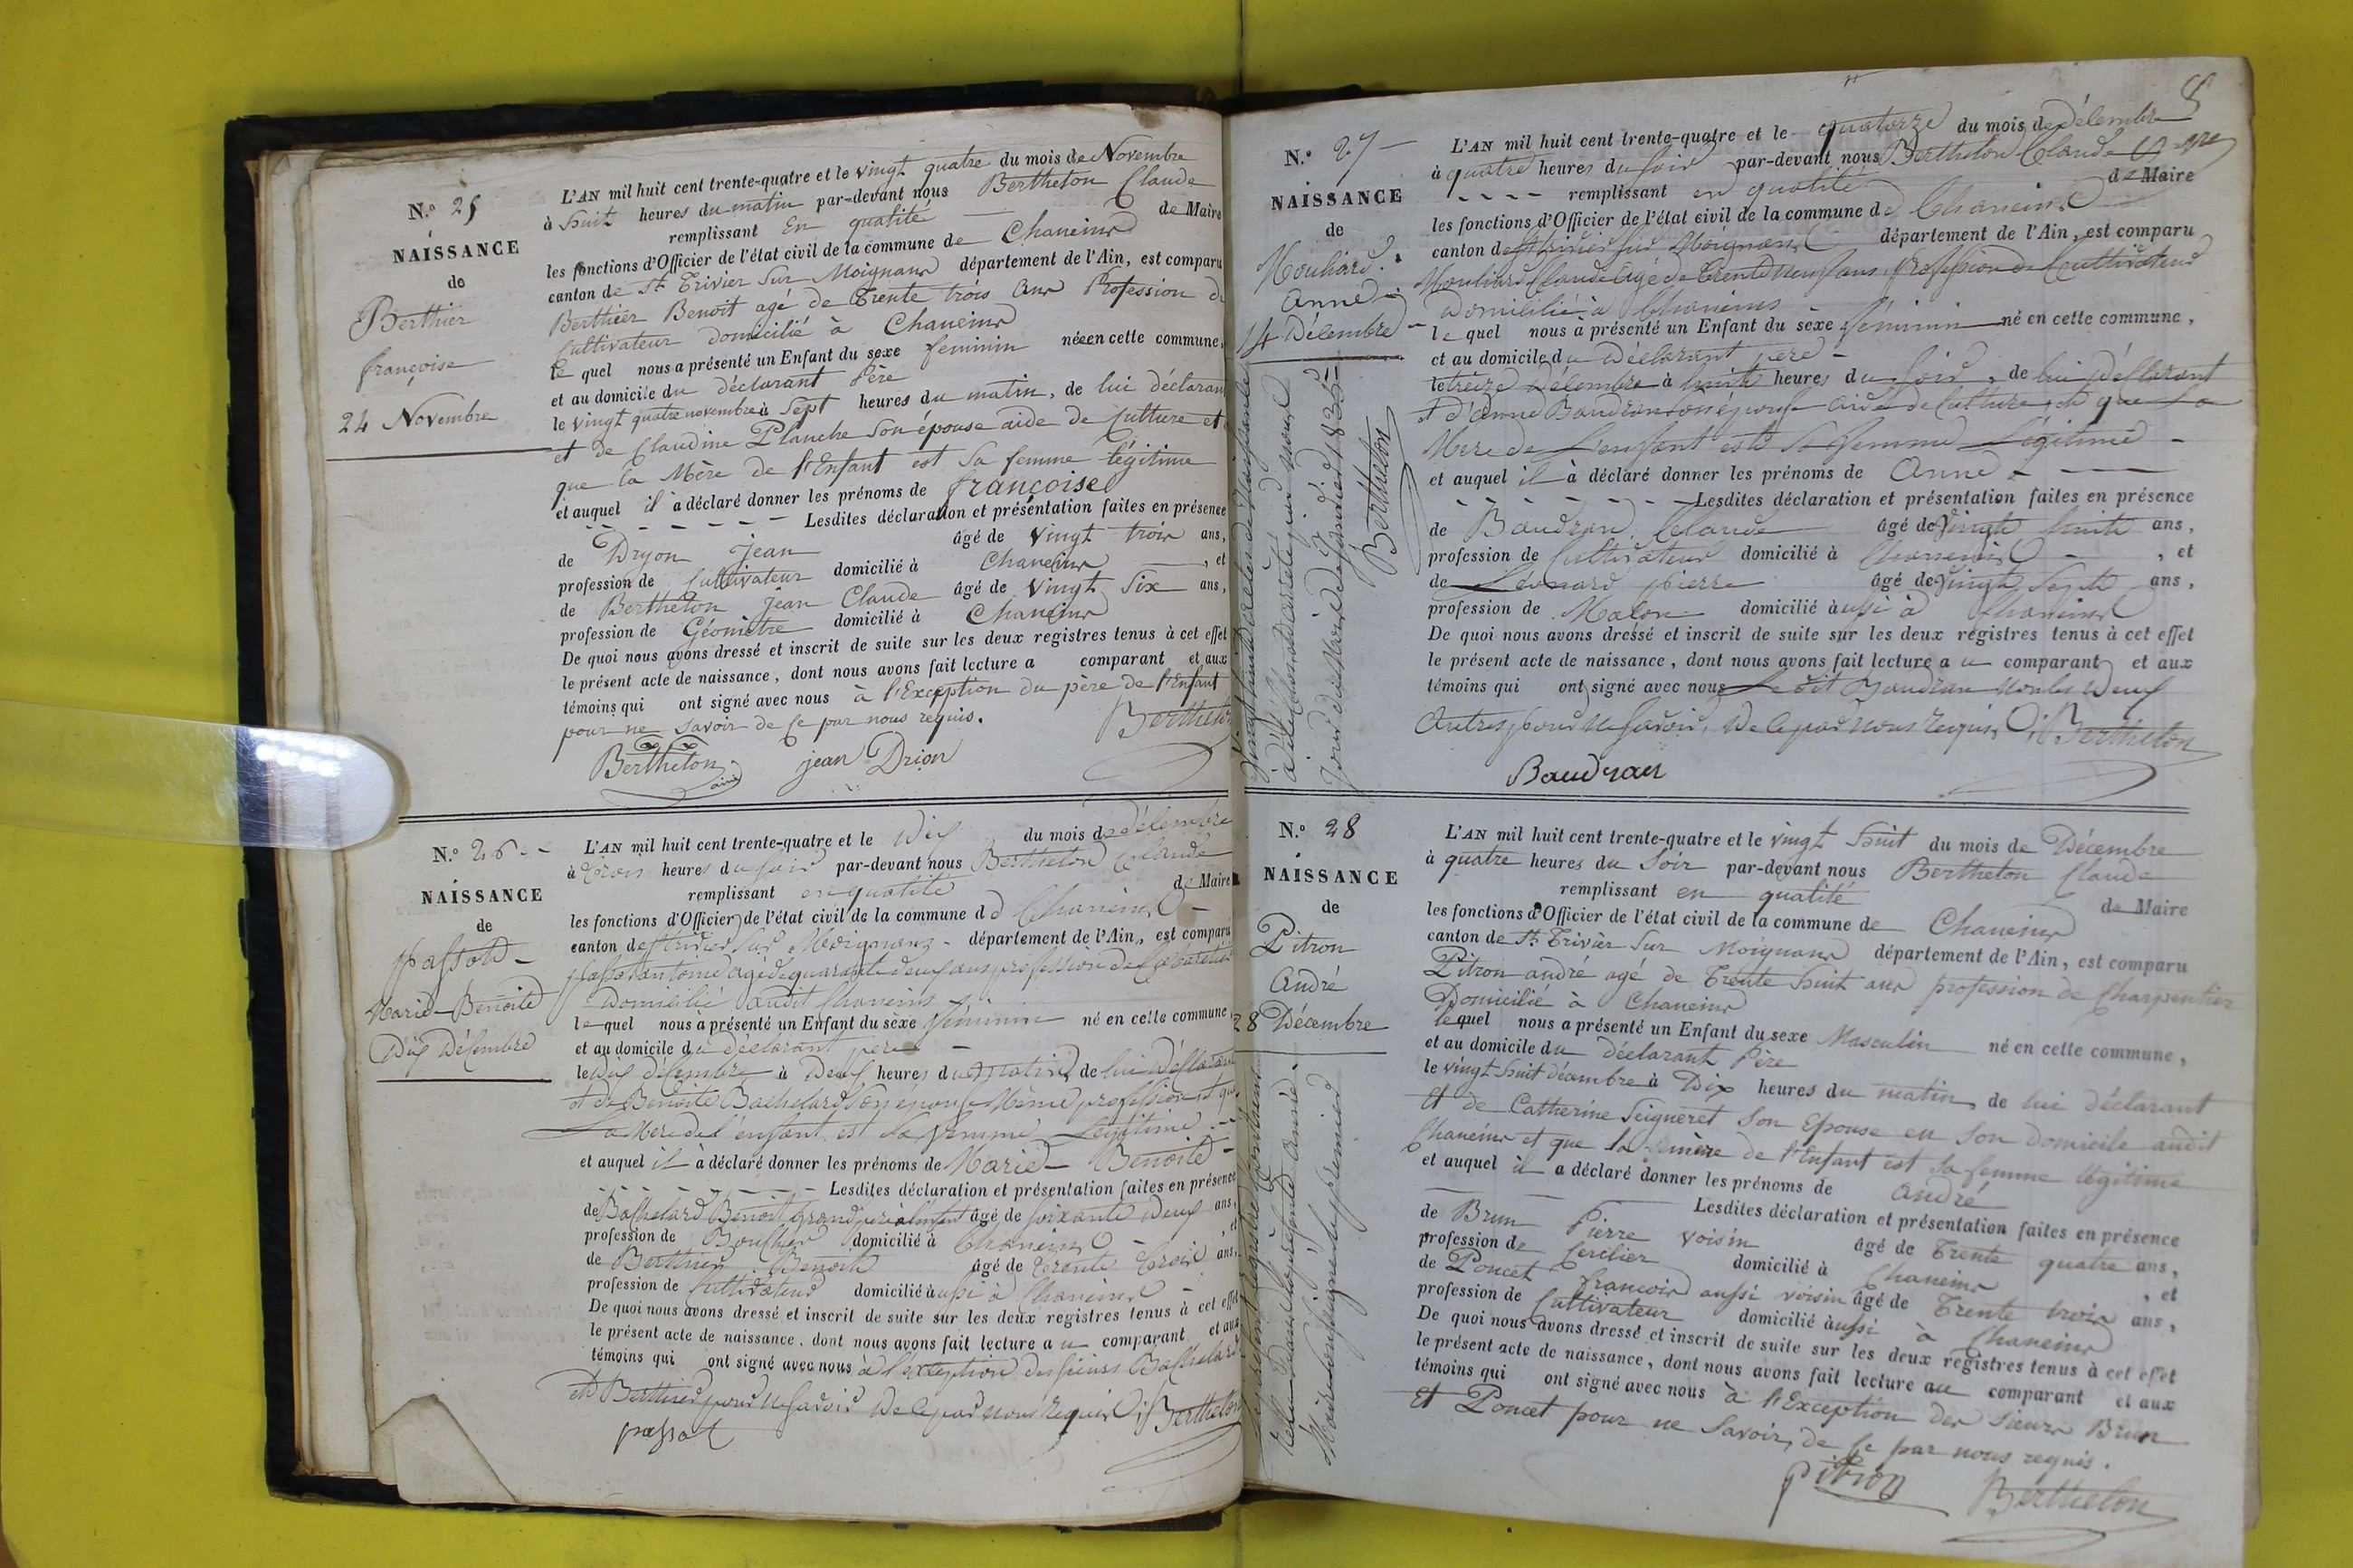 N.° 25
NAISSANCE
de
Berthier
françoise
24 Novembre
L'AN mil huit cent trente-quatre et le vingt quatre du mois de Novembre
à huit heures du matin par-devant nous Bertheton Claude
remplissant En qualité de Maire
les fonctions d'Officier de l'état civil de la commune de Chaneins
canton de St Trivier Sur Moignans département de l'Ain, est comparu
Berthier Benoit agé de Trente trois ans Profession de
Cultivateur domicilié à Chaneins
le quel nous a présenté un Enfant du sexe feminin néeen cette commune,
et au domicile du déclarant Père
le vingt quatre novembre à Sept heures du matin, de lui déclarant
et de Claudine Planche Son épouse aide de Culture et
que la Mère de l'Enfant est Sa femme légitime
et auquel il a déclaré donner les prénoms de françoise
Lesdites déclaration et présentation faites en présence
de Dryon Jean âgé de vingt trois ans,
profession de Cultivateur domicilié à Chaneins, et
de Bertheton Jean Claude âgé de vingt Six ans,
profession de Géomètre domicilié à Chaneins
De quoi nous avons dressé et inscrit de suite sur les deux registres tenus à cet effet
le présent acte de naissance, dont nous avons fait lecture a comparant et aux
témoins qui ont signé avec nous à l'Exception du père de l'Enfant
pour ne savoir de Ce par nous requis. Bertheton
Bertheton jean Drion
ainé
N.° 26
NAISSANCE
de
Passot
Marie Benoite
Dix Décembre
L'AN mil huit cent trente-quatre et le Dix du mois de décembre
à Trois heures du soir par-devant nous Bertheton Claude
remplissant en qualité de Maire
les fonctions d'Officier de l'état civil de la commune de Chaneins
canton de St trivier sur Moignans département de l'Ain, est comparu
passot antoine agé de quarante deux ans profession de
Domicilié audit Chaneins
le quel nous à présenté un Enfant du sèxe féminin né en cette commune,
et au domicile du déclarant père
le Dix décembre à Deux heures du Matin de lui Déclarant
et de Benoite Bachelard son épouse Même profession et que
La Mère de l'enfant est sa femme Légitime
et auquel il à déclaré donner les prénoms de Marie Benoite
Lesdites déclaration et présentation faites en présence
de Bachelard Benoit grand père à l'enfant âgé de soixante Deux ans,
profession de Boucher domicilié à Chaneins, et
de Berthier Benoit âgé de trente trois ans,
profession de Cultivateur domicilié aussi à Chaneins
De quoi nous avons dressé et inscrit de suite sur les deux registres tenus à cet effet
le présent acte de naissance, dont nous avons fait lecture a u comparant et aux
témoins qui ont signé avec nous à l'exception des sieurs Bachelard
et Berthier pour ne savoir De Ce par nous requis Bertheton
passot
8
N.° 27
NAISSANCE
de
Mouliard
Anne
14 Décembre
L'AN mil huit cent trente-quatre et le quatorze du mois de décembre
à quatre heures du soir par-devant nous Bertheton Claude
remplissant en qualité de Maire
les fonctions d'Officier de l'état civil de la commune de Chaneins
canton de St trivier sur Moignans département de l'Ain, est comparu
Mouliard Claude agé de Trente neuf ans, profession de Cultivateur
Domicilié à Chaneins
le quel nous à présenté un Enfant du sèxe féminin né en cette commune,
et au domicile du Déclarant père
le treize Décembre à huit heures du soir, de lui Déclarant
et d'anne Baudran son épouse aide de Culture, et que La
Mère de L'enfant est Sa femme Légitime
et auquel il à déclaré donner les prénoms de Anne
Lesdites déclaration et présentation faites en présence
de Baudran Claude âgé de vingt huit ans,
profession de Cultivateur domicilié à Chaneins, et
de Léonard pierre âgé de vingt Sept ans,
profession de Maçon domicilié aussi à Chaneins
De quoi nous avons dressé et inscrit de suite sur les deux registres tenus à cet effet
le présent acte de naissance, dont nous avons fait lecture a u comparant et aux
témoins qui ont signé avec nous Le dit Baudran Non les Deux
autres pour ne savoir, De Ce par nous requis Bertheton
Baudran
Bertheton
N.° 28
NAISSANCE
de
Pitron
André
28 Décembre
L'AN mil huit cent trente-quatre et le vingt huit du mois de Décembre
à quatre heures du Soir par-devant nous Bertheton Claude
remplissant en qualité de Maire
les fonctions d'Officier de l'état civil de la commune de Chaneins
canton de St Trivier Sur Moignans département de l'Ain, est comparu
Pitron andré agé de Trente huit ans profession de Charpentier
Domicilié à Chaneins
lequel nous a présenté un Enfant du sexe Masculin né en cette commune,
et au domicile du déclarant Père
le vingt huit décembre à Dix heures du matin, de lui déclarant
et de Catherine Seigneret Son Epouse en Son Domicile audit
Chaneins et que la mère de l'Enfant est Sa femme légitime
et auquel il a déclaré donner les prénoms de André
Lesdites déclaration et présentation faites en présence
de Brun Pierre voisin âgé de Trente quatre ans,
profession de Cerclier domicilié à Chaneins, et
de Poncet françois aussi voisin âgé de Trente trois ans,
profession de Cultivateur domicilié aussi à Chaneins
De quoi nous avons dressé et inscrit de suite sur les deux registres tenus à cet effet
le présent acte de naissance, dont nous avons fait lecture au comparant et aux
témoins qui ont signé avec nous à l'Exception des Sieurs Brun
et Poncet pour ne Savoir, de Ce par nous requis.
pitron Bertheton